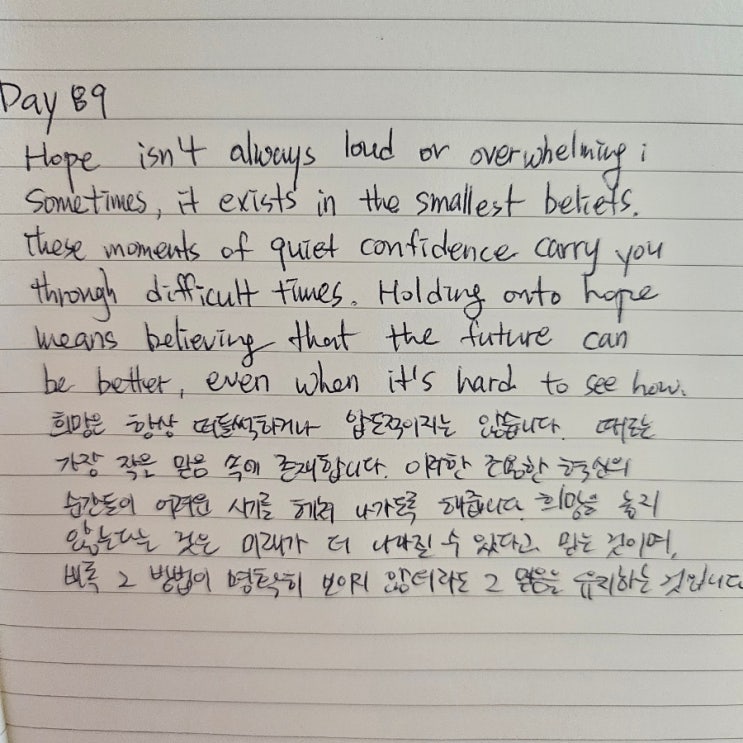 Day 89
Hope isn't always loud or overwhelming;
Sometimes, it exists in the smallest beliefs.
these moments of quiet confidence carry you
through difficult times. Holding onto hope
means believing that the future can
be better, even when it's hard to see how.
희망은 항상 떠들썩하거나 압도적이지는 않습니다. 때로는
가장 작은 믿음 속에 존재합니다. 이러한 조용한 확신의
순간들이 어려운 시기를 헤쳐 나가도록 해줍니다. 희망을 놓지
않는다는 것은 미래가 더 나아질 수 있다고 믿는 것이며,
비록 그 방법이 명확히 보이지 않더라도 그 믿음을 유지하는 것입니다